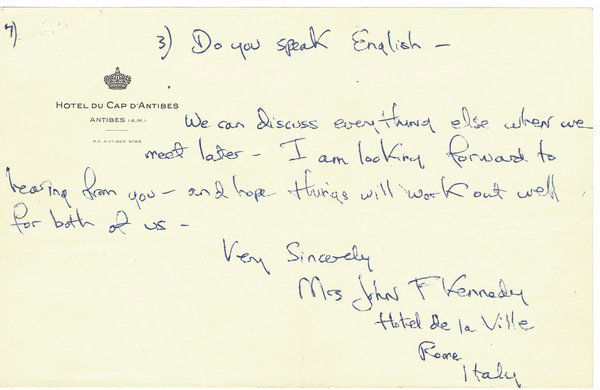 7)
3) Do you speak English –
HOTEL DU CAP D'ANTIBES
ANTIBES (A.M.)
R.C. ANTIBES 5788
We can discuss everything else when we
meet later – I am looking forward to
hearing from you – and hope things will work out well
for both of us –
Very Sincerely
Mrs John F Kennedy
Hotel de la Ville
Rome
Italy